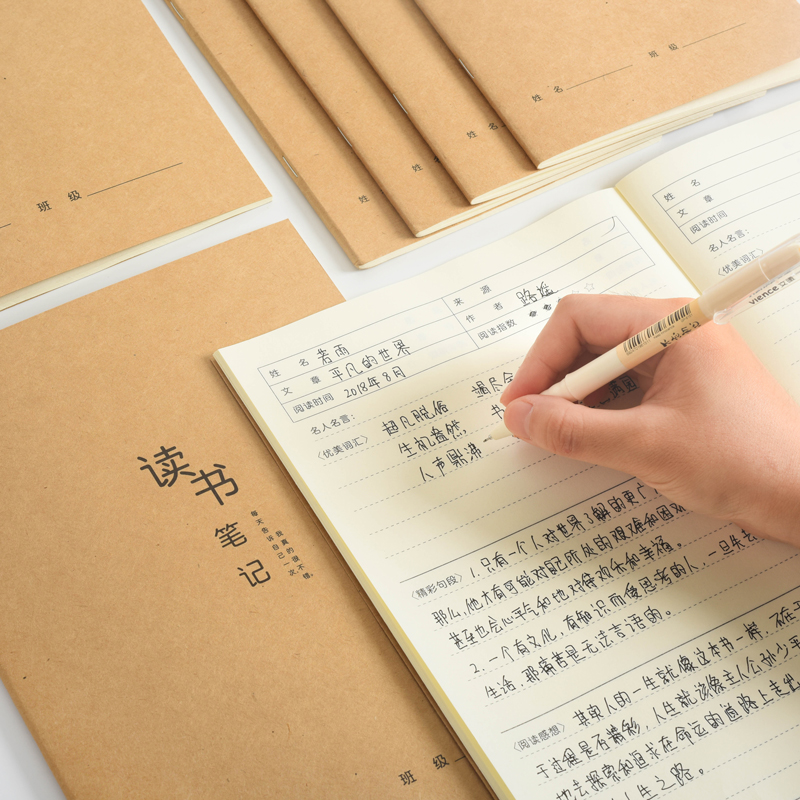 班 级
姓
姓
姓 名
姓 名
班 级
读书
笔记
每天告诉自己一次,
我真的很不错。
班 级
姓 名 若雨
来 源
文 章 平凡的世界
作 者 路遥
阅读时间 2018年8月
阅读指数
名人名言:
《优美词汇》 超凡脱俗 竭尽全
生机盎然, 书
人声鼎沸
《精彩句段》 1.只有一个人对世界了解的更广
那么,他才有可能对自己所处的艰难和困
甚至也会心平气和地对待欢乐和幸福。
2.一个有文化,有知识而使思考的人,一旦失去
生活,那痛苦是无法言语的。
《阅读感想》 其实人的一生就像这本书一样,不在于
于过程是否精彩,人生就该像主人公孙少平
地去探索和追求在命运的道路上走
人生之路。
姓 名
文 章
阅读时间
名人名言:
《优美词汇》
vience